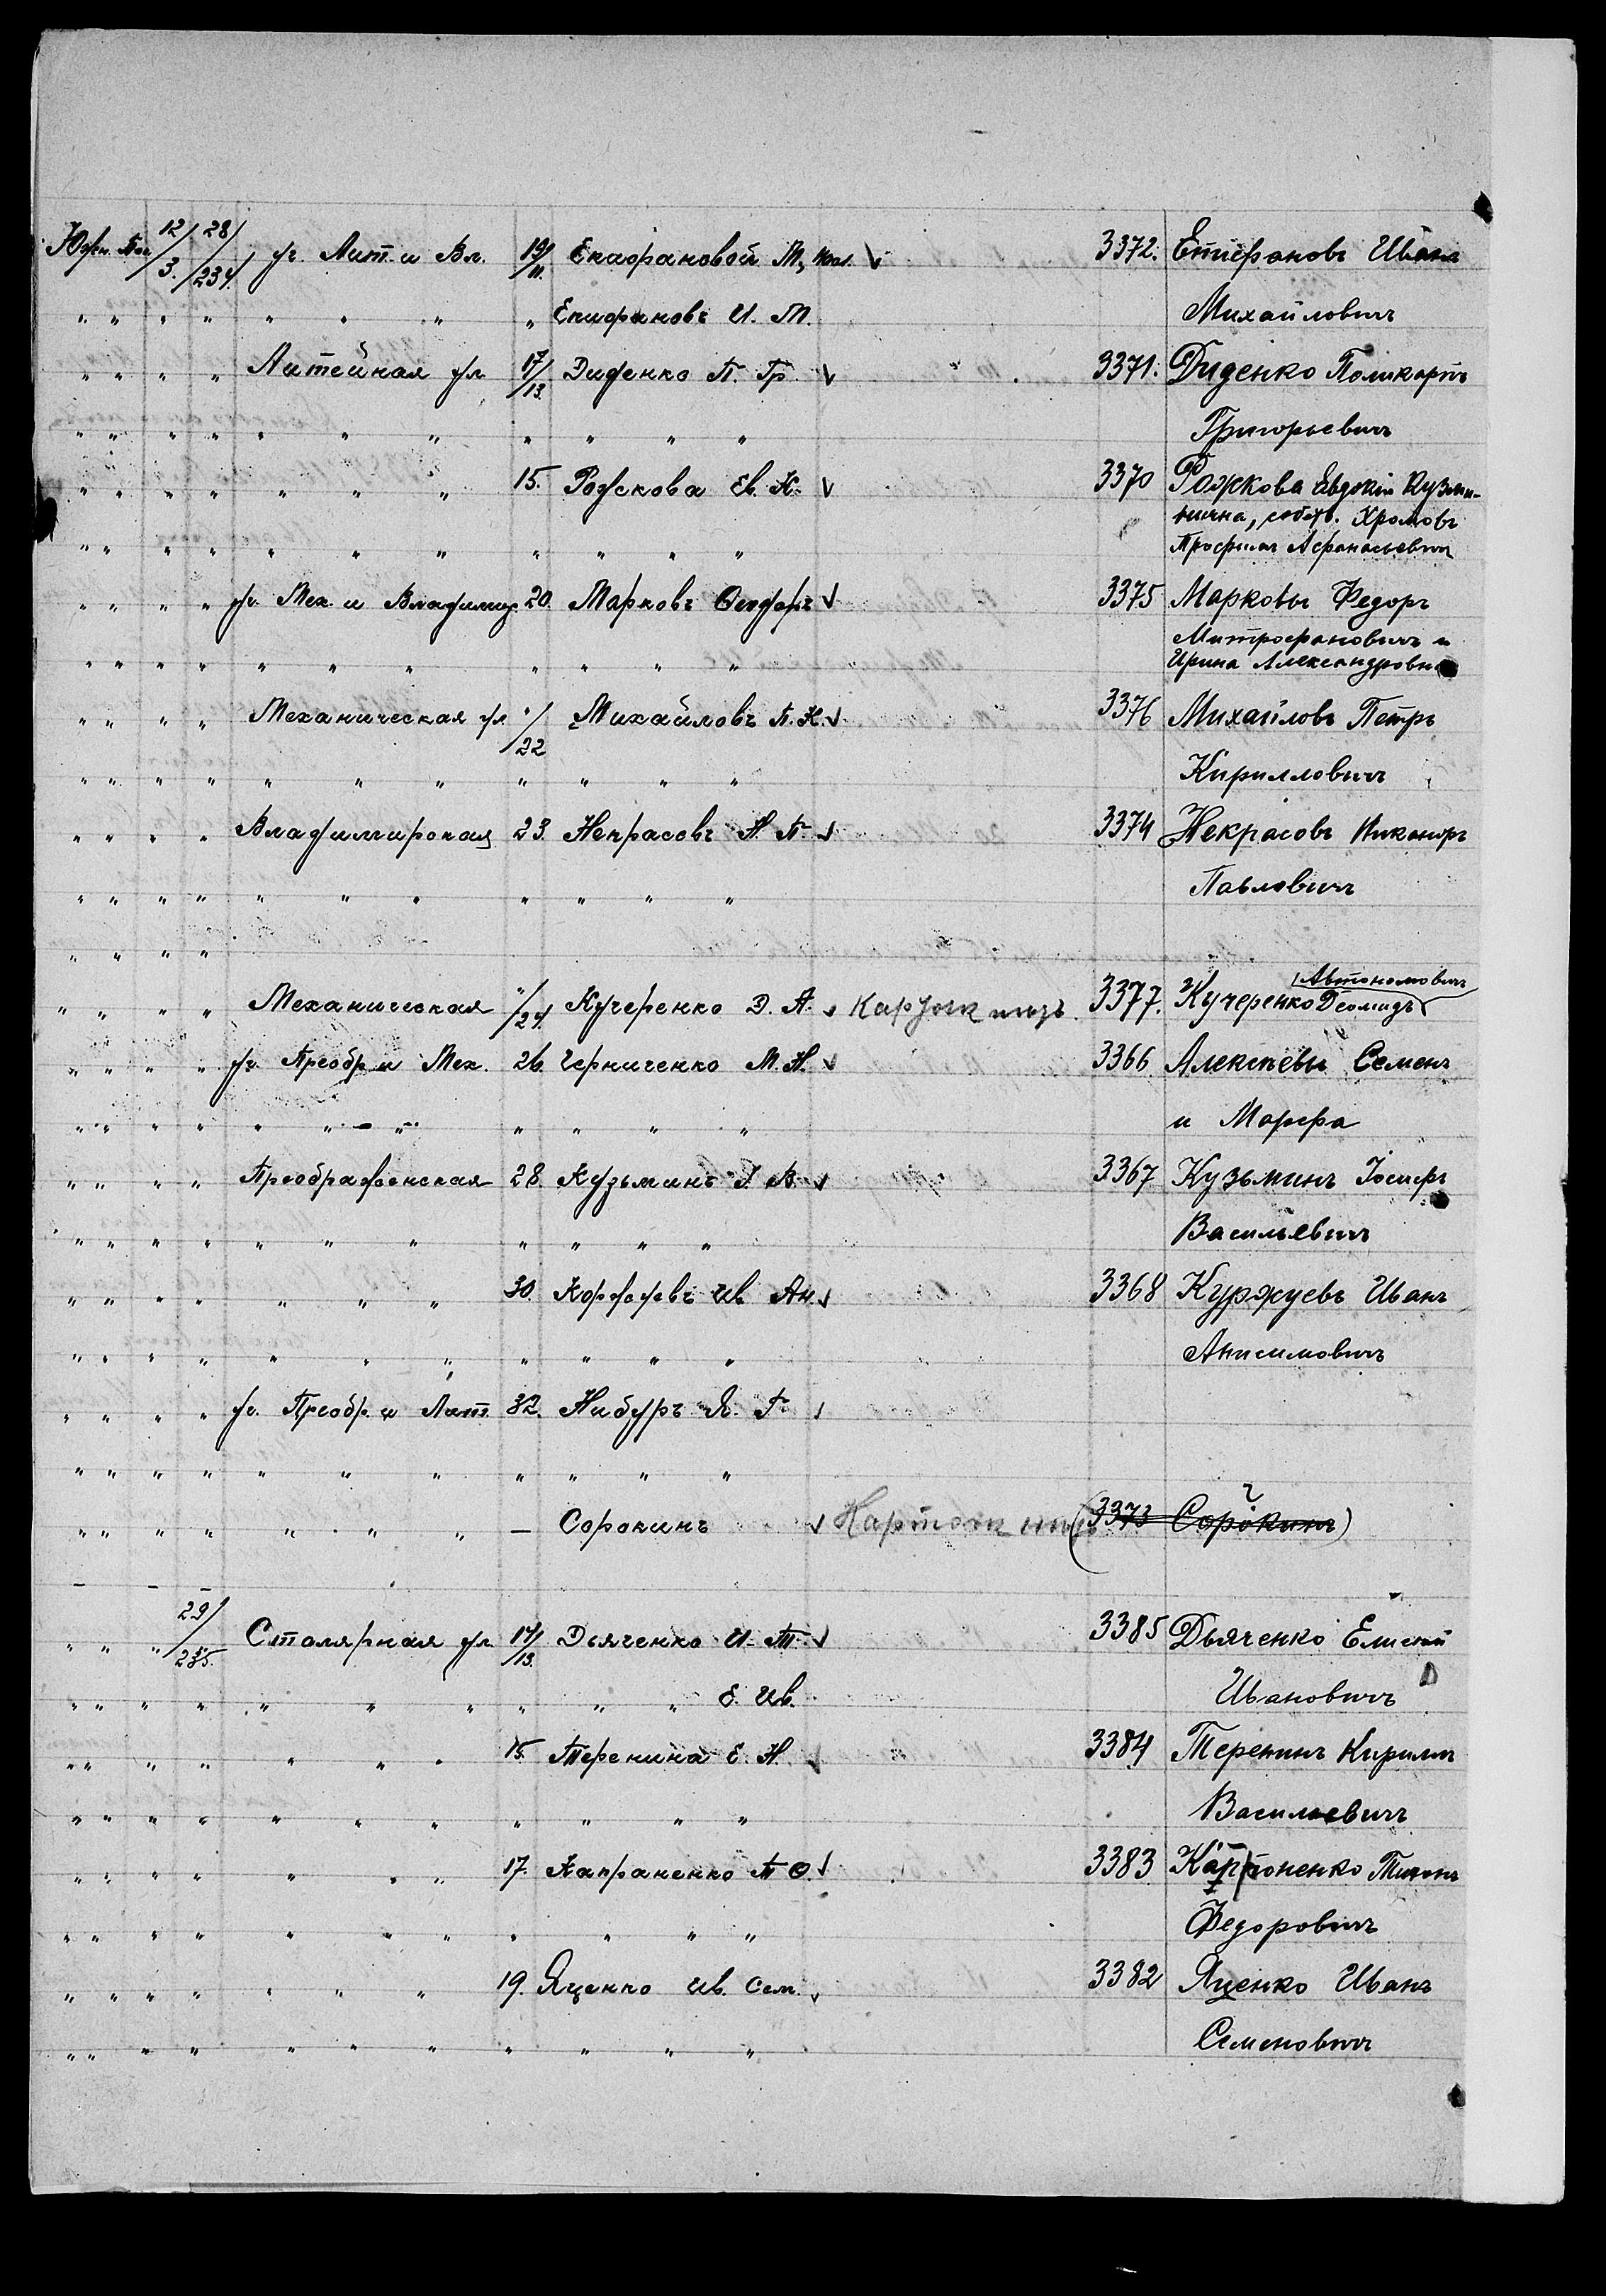 Южн. Пос. 12/3. 28/234. уг. Лит. и Вл. 19/11. Епифановой М. Ив. √ 3372. Епифановъ Иванъ
" " " " " " " " Епифановъ И. М. Михайловичъ
" " " " Литейная ул. 17/13. Диденко П. Гр. √ 3371. Диденко Поликарпъ
" " " " " " " " " " " Григорьевичъ
" " " " " " " 15. Рожкова Ев. К. √ 3370 Рожкова Евдокія Кузми-
нична, собств. Хромовъ
" " " " " " " " " " " Трофимъ Афанасьевич
" " " " уг. Мех. и Владимир. 20. Марковъ Ѳедоръ √ 3375 Марковы Федоръ
Митрофановичъ и
" " " " " " " " " " " Ирина Александровна
" " " " Механическая ул. "/22 Михайловъ П. К. √ 3376 Михайловъ Петръ
" " " " " " " " " " " Кирилловичъ
" " " " Владимирская 23. Некрасовъ Н. П. √ 3374 Некрасовъ Никаноръ
" " " " " " " " " " " Павловичъ
" " " "
Автономовичъ
" " " " Механическая "/24. Кучеренко Д. А. √ 3377. Кучеренко Деомидъ
" " " " уг. Преобр. и Мех. 26. Черниченко М. Н. √ 3366 Алексѣевы Семенъ
" " " " " " " " " " " и Марфа
" " " " Преображенская 28. Кузьминъ І. В. √ 3367 Кузьминъ Іосифъ
" " " " " " " " " " " Васильевичъ
" " " " " " " 30. Коржовъ Ив. Ан. √ 3368 Куржуевъ Иванъ
" " " " " " " " " " " Анисимовичъ
" " " " уг. Преобр. и Лит. 32. Нибуръ Я. Г. √
" " " " " " " " " " "
" " " " " " " — Сорокинъ √ Картоғк нѣтъ (3373 Сорокинъ)
— — —
" " " 29/235. Столярная ул. 17/13. Дьяченко И. Т. √ 3385 Дьяченко Елисей
" " " " " " " " " " Е. Ив. Ивановичъ
" " " " " " 15. Теренина Е. Н. √ 3384 Теренинъ Кириллъ
" " " " " " " " " " " Васильевичъ
" " " " " " " 17. Капраненко Т. Ѳ. √ 3383 Тихонъ
" " " " " " " " " " " Федоровичъ
" " " " " " " 19. Яценко Ив. Сем. √ 3382 Яценко Иванъ
" " " " " " " " " " " Семеновичъ